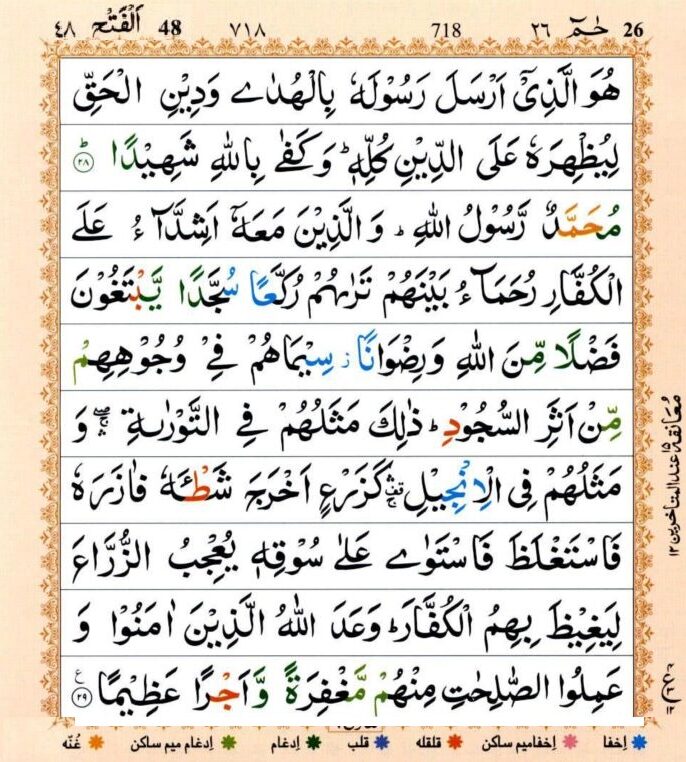 26 حٰمٓ ٢٦ 718 ٧١٨ 48 اَلْفَتْح ٤٨
هُوَ الَّذِیْۤ اَرْسَلَ رَسُوْلَهٗ بِالْهُدٰی وَ دِیْنِ الْحَقِّ
لِیُظْهِرَهٗ عَلَی الدِّیْنِ كُلِّهٖ ؕ وَ كَفٰی بِاللّٰهِ شَهِیْدًا ؕ ﴿۲۸﴾
مُحَمَّدٌ رَّسُوْلُ اللّٰهِ ؕ وَ الَّذِیْنَ مَعَهٗۤ اَشِدَّآءُ عَلَی
الْكُفَّارِ رُحَمَآءُ بَیْنَهُمْ تَرٰىهُمْ رُكَّعًا سُجَّدًا یَّبْتَغُوْنَ
فَضْلًا مِّنَ اللّٰهِ وَ رِضْوَانًا ؗ سِیْمَاهُمْ فِیْ وُجُوْهِهِمْ
مِّنْ اَثَرِ السُّجُوْدِ ؕ ذٰلِكَ مَثَلُهُمْ فِی التَّوْرٰىةِ ۛۖۚ وَ
مَثَلُهُمْ فِی الْاِنْجِیْلِ ۛ۫ۚ كَزَرْعٍ اَخْرَجَ شَطْـَٔهٗ فَاٰزَرَهٗ
فَاسْتَغْلَظَ فَاسْتَوٰی عَلٰی سُوْقِهٖ یُعْجِبُ الزُّرَّاعَ
لِیَغِیْظَ بِهِمُ الْكُفَّارَ ؕ وَعَدَ اللّٰهُ الَّذِیْنَ اٰمَنُوْا وَ
عَمِلُوا الصّٰلِحٰتِ مِنْهُمْ مَّغْفِرَةً وَّ اَجْرًا عَظِیْمًا ﴿۲۹﴾ ع
معانقة ۱۵ عند المتأخرین ۱۲
اِخفا اِخفامیم ساکن قلقله قلب اِدغام اِدغام میم ساکن غُنّه